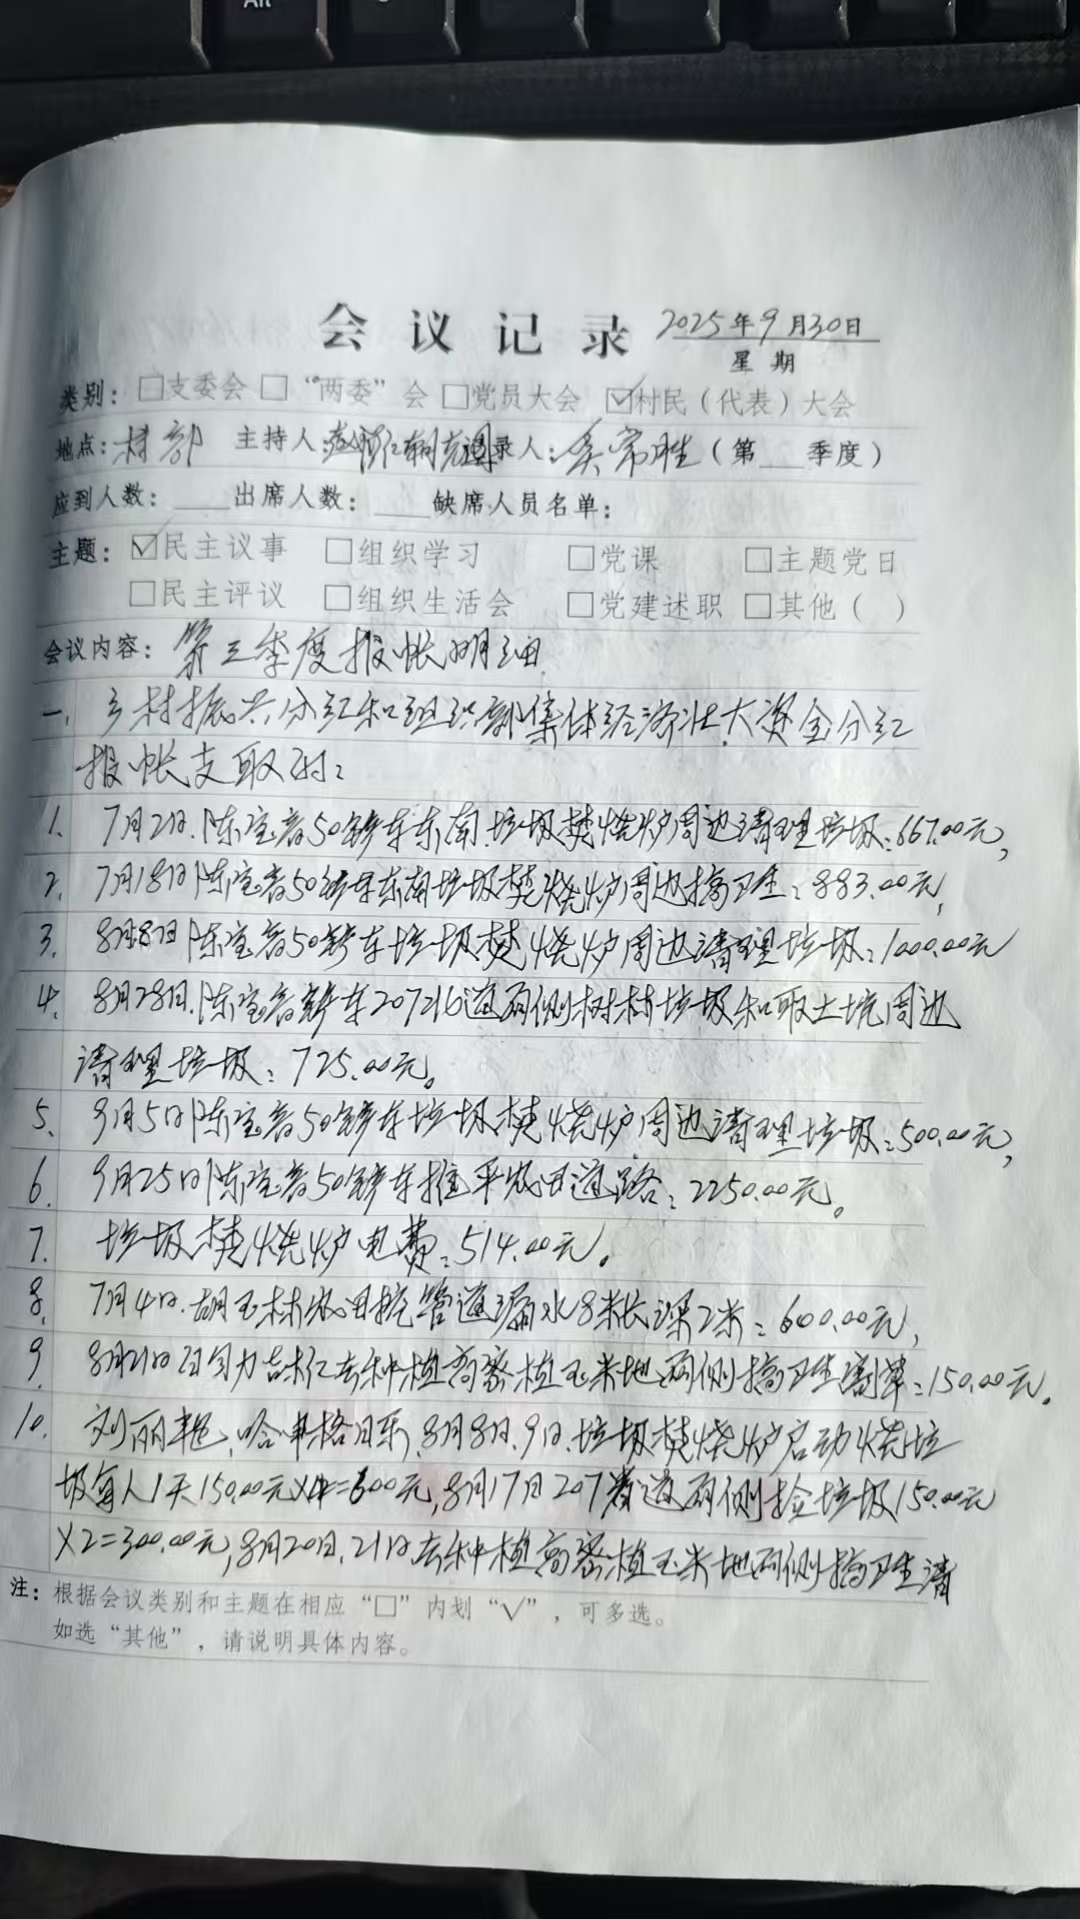 Alt
会议记录 2025年9月30日
星期
类别：□支委会 □“两委”会 □党员大会 ☑村民（代表）大会
地点：村部 主持人： 录人：吴常胜（第__季度）
应到人数：____出席人数：____缺席人员名单：
主题：☑民主议事 □组织学习 □党课 □主题党日
□民主评议 □组织生活会 □党建述职 □其他（ ）
会议内容：第三季度报帐明细
一、乡村振兴分红和组织部集体经济壮大资金分红
报帐支取时：
1、7月2日、陈宝音50铲车东南垃圾焚烧炉周边清理垃圾：667.00元，
2、7月18日陈宝音50铲车东南垃圾焚烧炉周边搞卫生：883.00元，
3、8月8日陈宝音50铲车垃圾焚烧炉周边清理垃圾：1000.00元
4、8月28日、陈宝音铲车207216道两侧树林垃圾和取土坑周边
清理垃圾：725.00元。
5、9月5日陈宝音50铲车垃圾焚烧炉周边清理垃圾：500.00元，
6、9月25日陈宝音50铲车推平农田道路：2250.00元。
7、垃圾焚烧炉电费：514.00元。
8、7月4日、胡玉林农田挖管道漏水8米长深2米：600.00元，
9、8月21日 去种植高密植玉米地两侧搞卫生割草：150.00元。
10、刘丽艳、哈申格日乐、8月8日、9日、垃圾焚烧炉启动烧垃
圾每人1天150.00元×4=600元，8月17日207 道两侧捡垃圾150.00元
×2=300.00元，8月20日、21日去种植高密植玉米地两侧搞卫生清
注：根据会议类别和主题在相应“□”内划“√”，可多选。
如选“其他”，请说明具体内容。